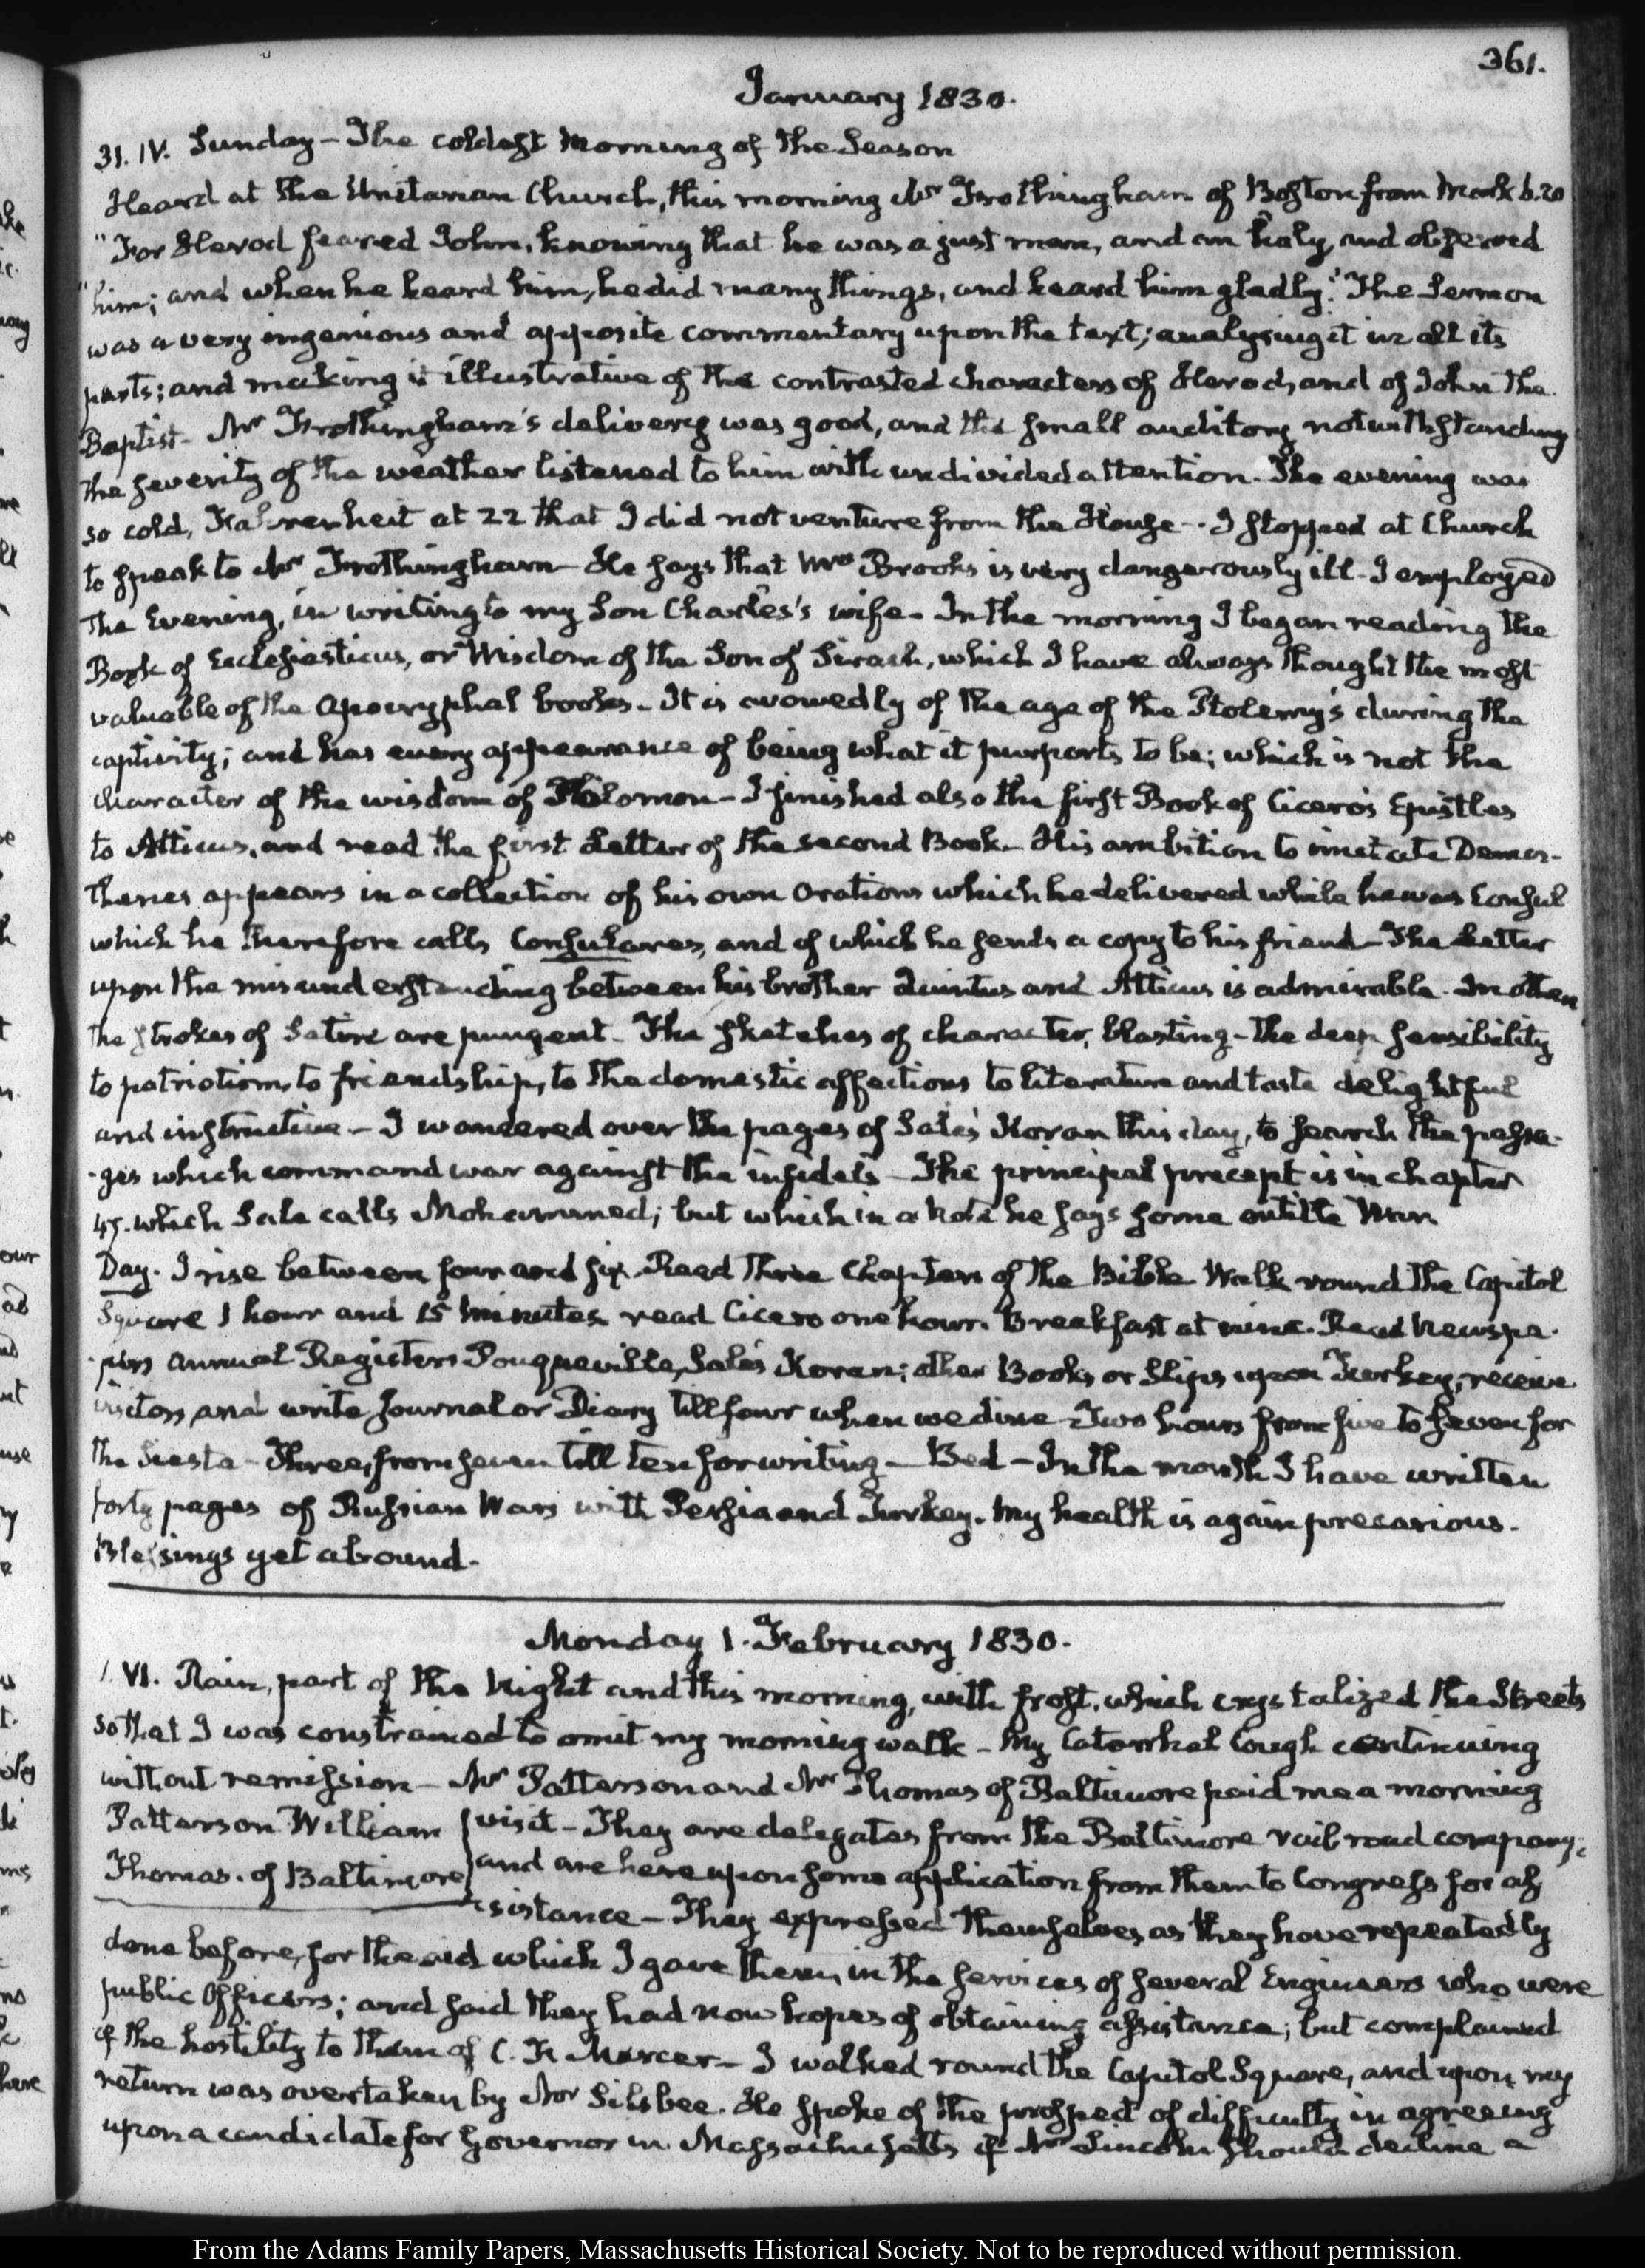 361.
January 1830.
31. IV. Sunday – The coldest Morning of the Season
Heard at the Unitarian Church, this morning Mr Frothingham of Boston from Mark 6.20
"For Herod feared John, knowing that he was a just man, and an holy, and observed
"him; and when he heard him, he did many things, and heard him gladly." The Sermon
was a very ingenious and apposite commentary upon the text; analysing it in all its
parts; and making it illustrative of the contrasted characters of Herod, and of John the
Baptist – Mr Frothingham's delivery was good, and the small auditory notwithstanding
the severity of the weather listened to him with undivided attention. The evening was
so cold, Fahrenheit at 22 that I did not venture from the House – I stopped at Church
to speak to Mr Frothingham – He says that Mrs Brooks is very dangerously ill – I employed
the Evening, in writing to my Son Charles's wife – In the morning I began reading the
Book of Ecclesiasticus, or Wisdom of the Son of Sirach, which I have always thought the most
valuable of the Apocryphal books – It is avowedly of the age of the Ptolemy's during the
captivity; and has every appearance of being what it purports to be; which is not the
character of the wisdom of Solomon – I finished also the first Book of Cicero's Epistles
to Atticus, and read the first Letter of the second Book – His ambition to imitate Demos-
thenes appears in a collection of his own Orations which he delivered while he was Consul
which he therefore calls Consulares, and of which he sends a copy to his friend – The Letter
upon the misunderstanding between his brother Quintus and Atticus is admirable. In others
the strokes of Satire are pungent – The sketches of character, blasting – the deep sensibility
to patriotism, to friendship, to the domestic affections to literature and taste delightful
and instructive – I wandered over the pages of Sale's Koran this day, to search the passa-
-ges which command war against the infidels – The principal precept is in chapter
47. which Sale calls Mohammed; but which in a Note he says some entitle War
Day. I rise between four and six. Read three Chapters of the Bible Walk round the Capitol
Square 1 hour and 15 minutes read Cicero one hour. Breakfast at nine. Read Newspa-
-pers Annual Registers Pouqueville, Sale's Koran; other Books or Slips upon Turkey, receive
visitors and write Journal or Diary till four when we dine – Two hours from five to seven for
the Siesta – Three, from seven till ten for writing – Bed – In the month I have written
forty pages of Russian Wars with Persia and Turkey. My health is again precarious.
Blessings yet abound.
Monday 1. February 1830.
1. VI. Rain, part of the Night and this morning, with frost, which crystalized the Streets
so that I was constrained to omit my morning walk – My Catarrhal Cough continuing
without remission – Mr Patterson and Mr Thomas of Baltimore paid me a morning
Patterson William visit – They are delegates from the Baltimore rail road company;
Thomas. of Baltimore and are here upon some application from them to Congress for as
sistance – They expressed themselves, as they have repeatedly
done before, for the aid which I gave them, in the services of several Engineers who were
public Officers; and said they had now hopes of obtaining assistance; but complained
of the hostility to them of C. F. Mercer – I walked round the Capitol Square, and upon my
return was overtaken by Mr Silsbee. He spoke of the prospect of difficulty in agreeing
upon a candidate for Governor in Massachusetts if Mr Lincoln should decline a
From the Adams Family Papers, Massachusetts Historical Society. Not to be reproduced without permission.